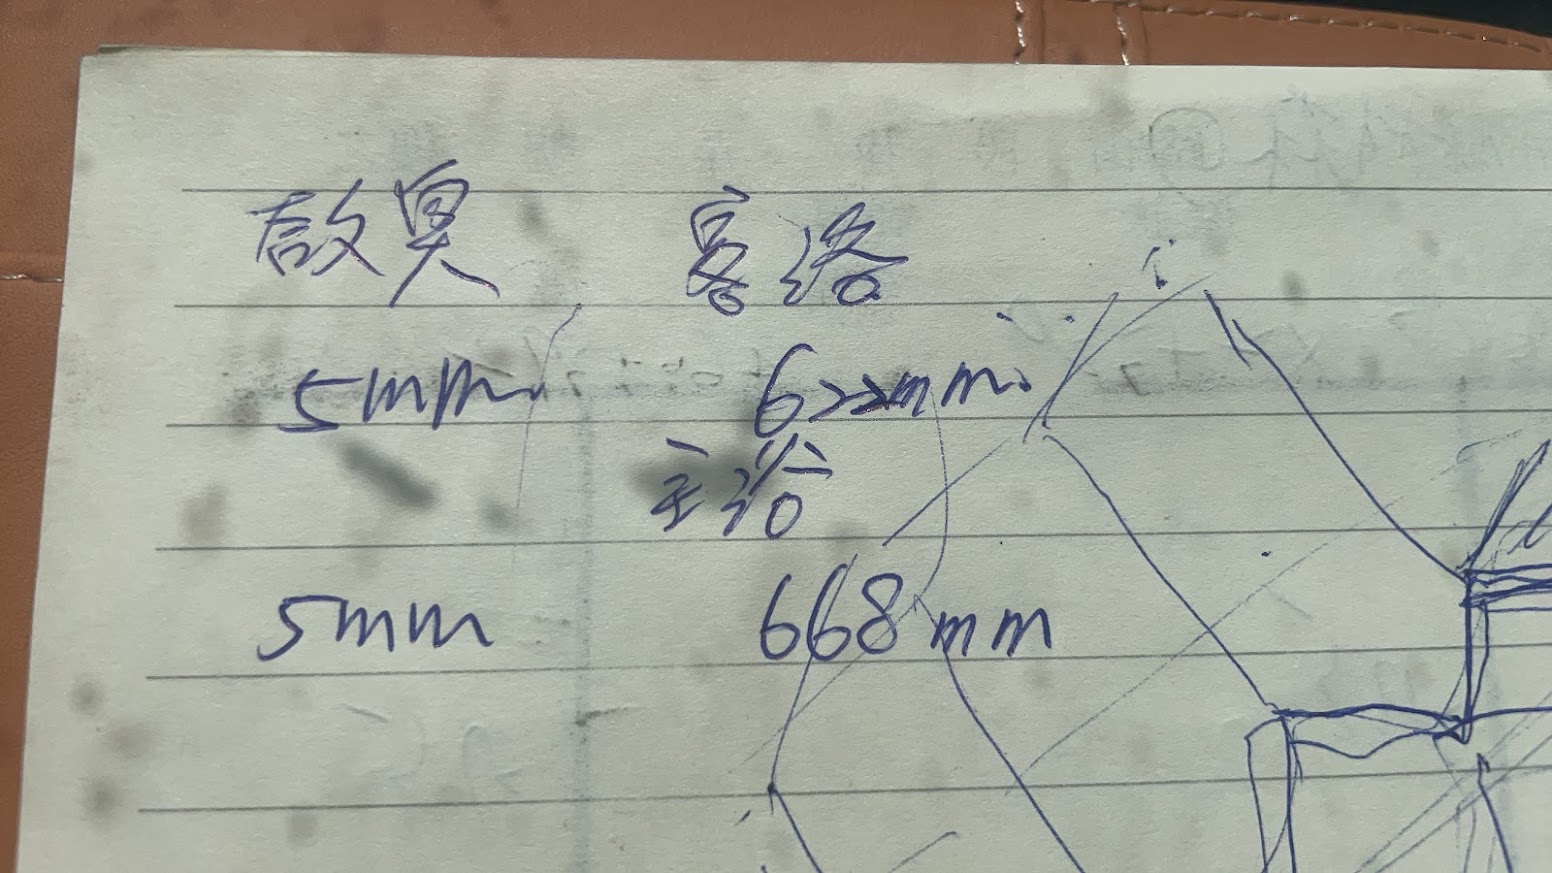 客浴
5mm 622mm
主浴
5mm 668mm